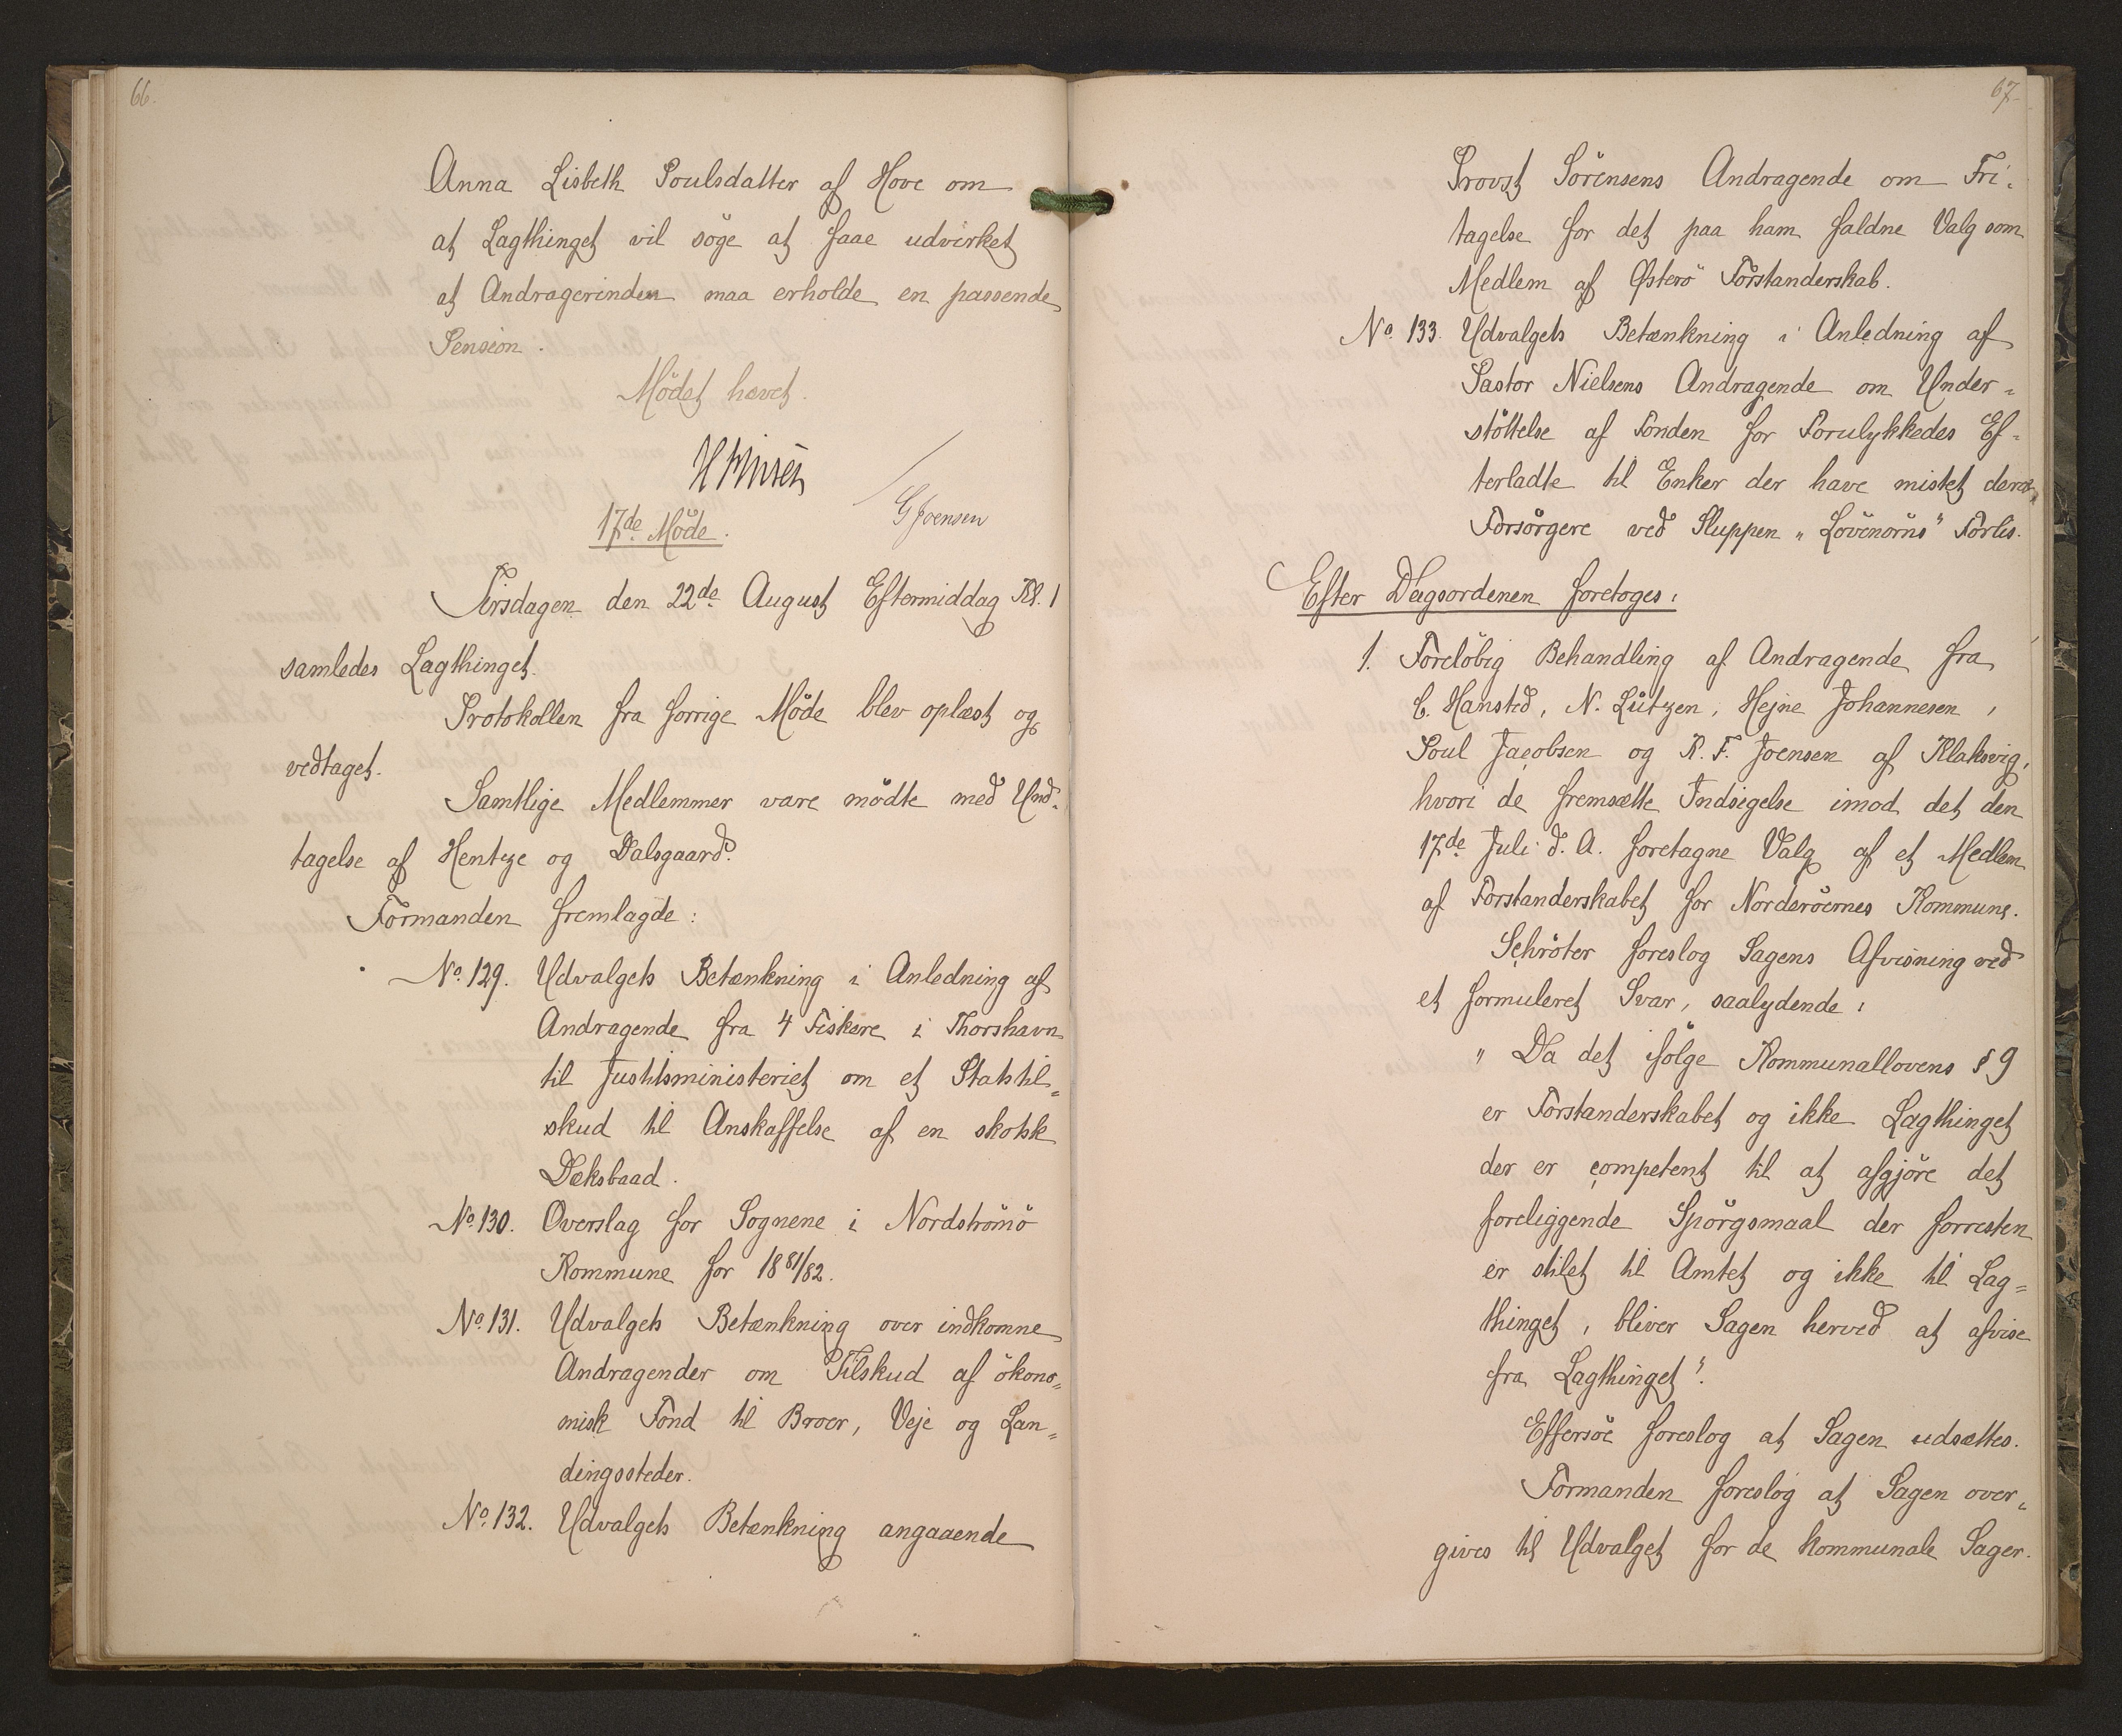 66.
Anna Lisbeth Poulsdatter af Hove om
at Lagthinget vil söge at faae udvirket
at Andragerinden maa erholde en passende
Pension.
Mödet hævet.
G Joensen
17de Möde.
Tirsdagen den 22de August Eftermiddag Kl. 1
samledes Lagthinget.
Protokollen fra forrige Möde blev oplæst og
vedtaget.
Samtlige Medlemmer vare mödte med Und-
tagelse af Hentze og Dalsgaard.
Formanden fremlagde:
No. 129. Udvalgets Betænkning i Anledning af
Andragende fra 4 Fiskere i Thorshavn
til Justitsministeriet om et Statstil=
skud til Anskaffelse af en skotsk
Dæksbaad.
No. 130. Overslag for Sognene i Nordströmö
Kommune for 1881/82.
No. 131. Udvalgets Betænkning over indkomne
Andragender om Tilskud af ökono=
misk Fond til Broer, Veje og Lan=
dingssteder.
No. 132. Udvalgets Betænkning angaaende
67.
Provst Sörensens Andragende om Fri=
tagelse for det paa ham faldne Valg som
Medlem af Österö Forstanderskab.
No. 133. Udvalgets Betænkning i Anledning af
Pastor Nielsens Andragende om Under=
stöttelse af Fonden for Forulykkedes Ef=
terladte til Enker der have mistet deres
Forsörgere ved Sluppen „Lövenörns" Forlis.
Efter Dagsordenen foretoges:
1. Forelöbig Behandling af Andragende fra
C. Hansted, N. Lützen, Hejne Johannesen,
Poul Jacobsen og K. F. Joensen af Klaksvig,
hvori de fremsætte Indsigelse imod det den
17de Juli d. A. foretagne Valg af et Medlem
af Forstanderskabet for Norderöernes Kommune.
Schröter foreslog Sagens Afvisning ved
et formuleret Svar, saalydende:
„Da det ifölge Kommunallovens § 9
er Forstanderskabet og ikke Lagthinget
der er competent til at afgjöre det
foreliggende Spörgsmaal der forresten
er stilet til Amtet og ikke til Lag=
thinget, bliver Sagen herved at afvise
fra Lagthinget".
Effersöe foreslog at Sagen udsættes.
Formanden foreslog at Sagen over=
gives til Udvalget for de kommunale Sager.